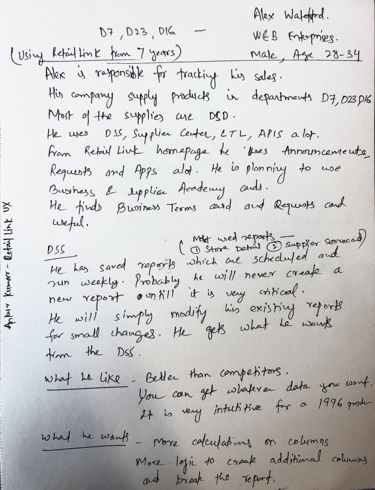 Alex Watford.
D7, D23, D16 —
W&B Enterprises.
(Using RetailLink from 7 years)
Male, Age 28-34
Alex is responsible for tracking his sales.
His company supply products in departments D7, D23, D16
Most of the supplies are DSD.
He uses DSS, Supplier Center, LTL, APIS a lot.
from Retail Link homepage he uses Announcements,
Requests and Apps a lot. He is planning to use
Business & Supplier Academy cards.
He finds Business Terms card and Requests card
useful.
DSS
(Most used reports —
① Store Detail ② Supplier Scorecard)
He has saved reports which are scheduled and
run weekly. Probably he will never create a
new report untill it is very critical.
He will simply modify his existing reports
for small changes. He gets what he wants
from the DSS.
What he like - Better than competitors.
You can get whatever data you want.
It is very intuitive for a 1996
What he wants - More calculations on columns
More logic to create additional columns
and break the report.
Ankur Kumar - Retail Link UX